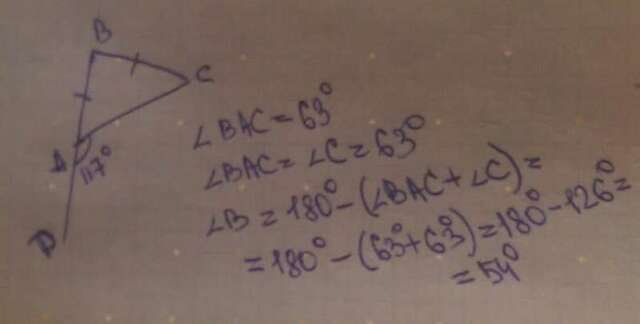 B
C
A
117°
D
∠BAC = 63°
∠BAC = ∠C = 63°
∠B = 180° - (∠BAC + ∠C) =
= 180° - (63° + 63°) = 180° - 126° =
= 54°